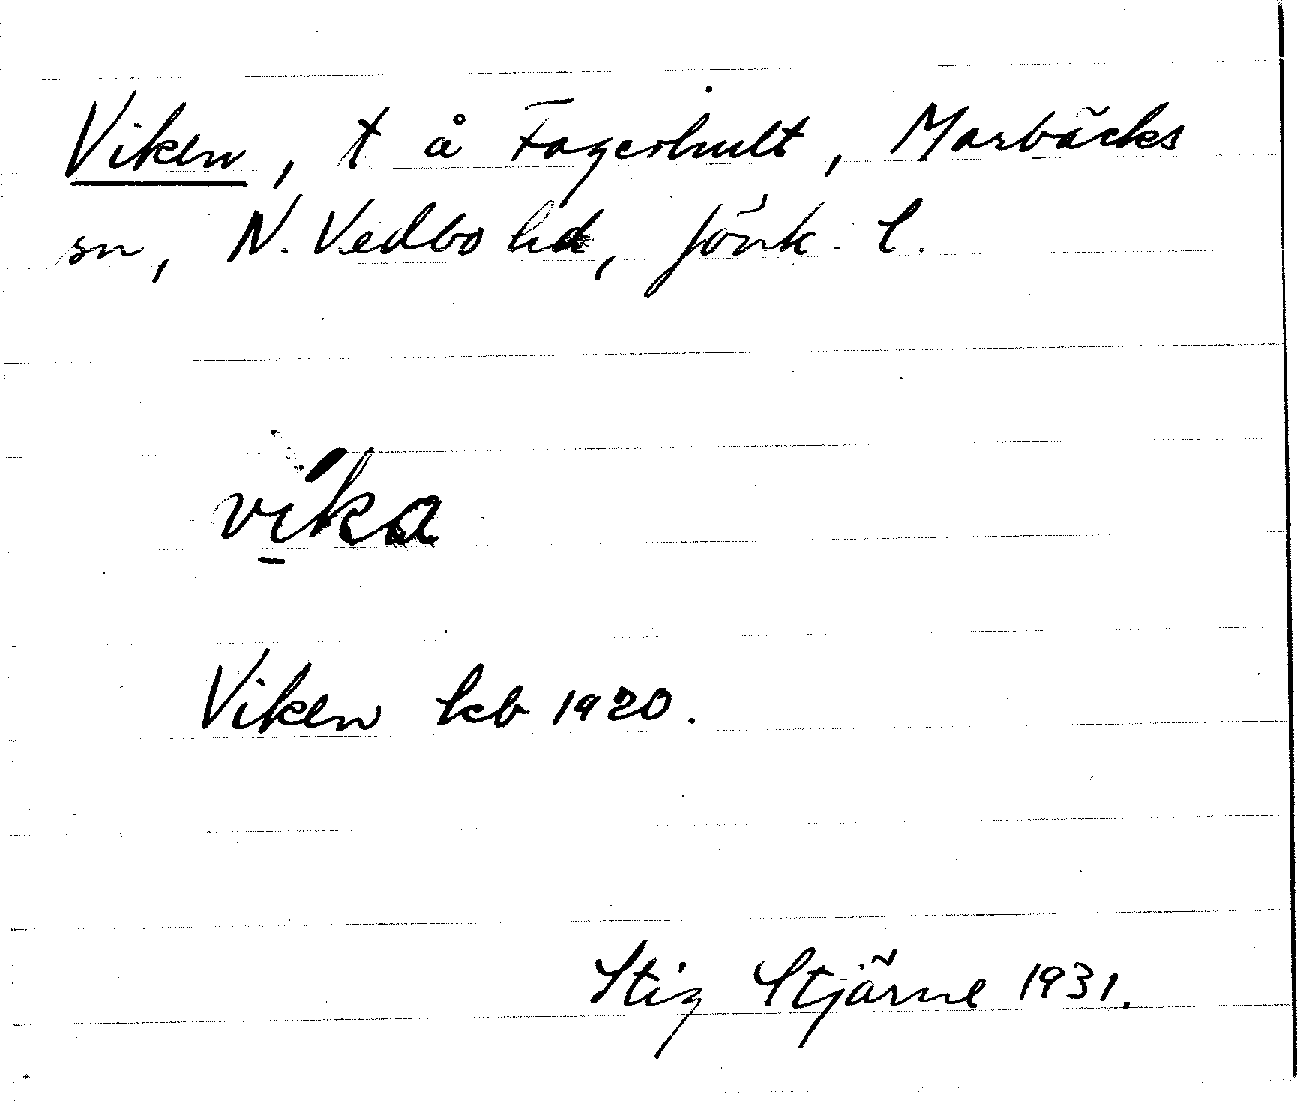 Viken, t å Fagerhult, Marbäcks
sn, N. Vedbo hd, Jönk. l.
víka
Viken kb 1920.
Stig Stjärne 1931.